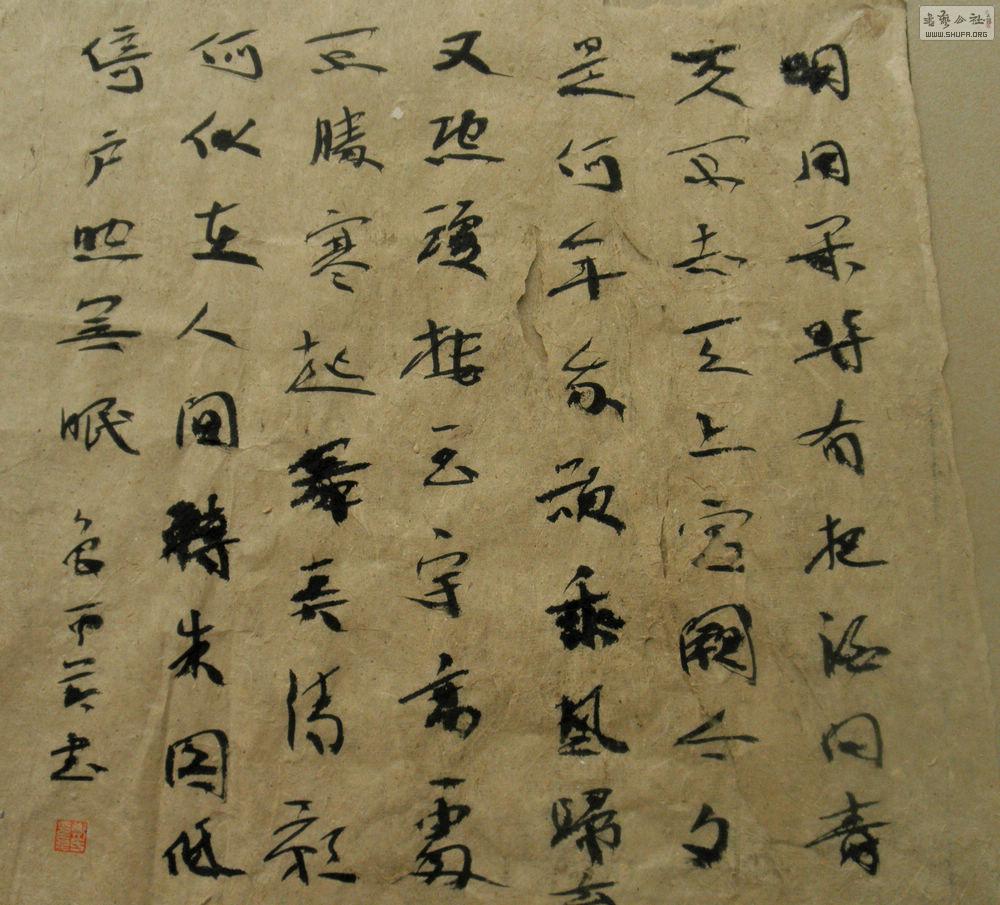 明月几時有把酒问青
天不知天上宫阙今夕
是何年我欲乘風歸去
又恐瓊楼玉宇高處
不勝寒起舞弄清影
何似在人间轉朱阁低
绮户照無眠
书
書藝公社
WWW.SHUFA.ORG